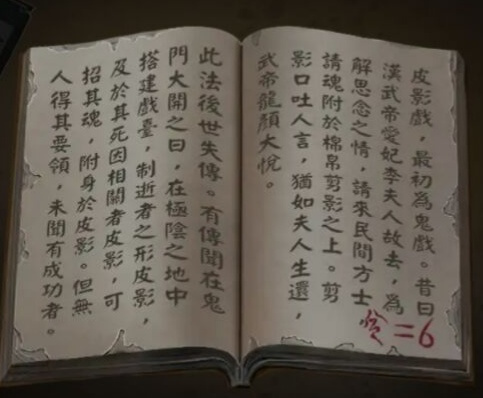 皮影戲，最初為鬼戲。昔日
漢武帝愛妃李夫人故去，為
解思念之情，請來民間方士
請魂附於棉帛剪影之上。剪
影口吐人言，猶如夫人生還，
武帝龍顏大悅。
=6
此法後世失傳。有傳聞在鬼
門大開之日，在極陰之地中
搭建戲臺，制逝者之形皮影，
及於其死因相關者皮影，可
招其魂，附身於皮影。但無
人得其要領，未聞有成功者。